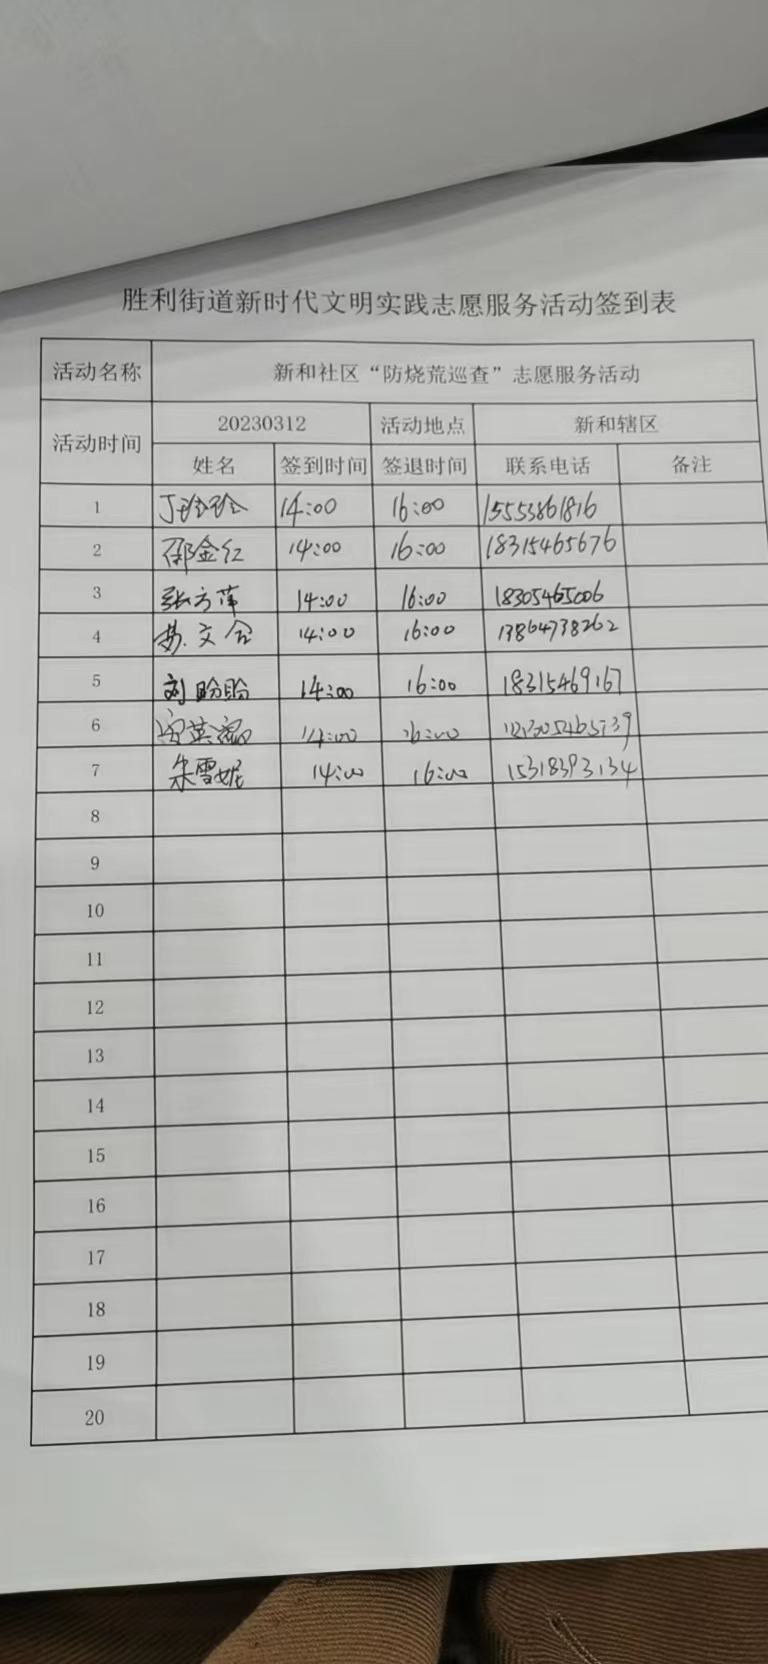 胜利街道新时代文明实践志愿服务活动签到表
活动名称 新和社区“防烧荒巡查”志愿服务活动
活动时间 20230312 活动地点 新和辖区
姓名 签到时间 签退时间 联系电话 备注
1 丁玲玲 14:00 16:00 15553861816
2 邵金红 14:00 16:00 18315465676
3 张方萍 14:00 16:00 18305465006
4 14:00 16:00 13864738262
5 刘盼盼 14:00 16:00 18315469167
6 14:00 16:00
7 朱雪妮 14:00 16:00 15318393134
8
9
10
11
12
13
14
15
16
17
18
19
20